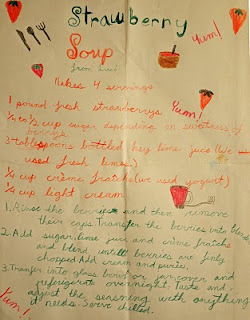 Strawberry
Yum!
Soup
Makes 4 servings
1 pound fresh strawberries
Yum!
cup sugar depending on sweetness of
berries
3 tablespoons bottled key lime juice (We
used fresh limes.)
cup crème fraîche (we used yogurt)
cup light cream
1. Rinse the berries and then remove
their caps. Transfer the berries into blender
2. Add sugar, lime juice and crème fraîche
and blend until berries are finely
chopped. Add cream and puree.
3. Transfer into glass bowl or jar, cover and
refrigerate overnight. Taste and
adjust the seasoning with anything
it needs. Serve chilled.
Yum!